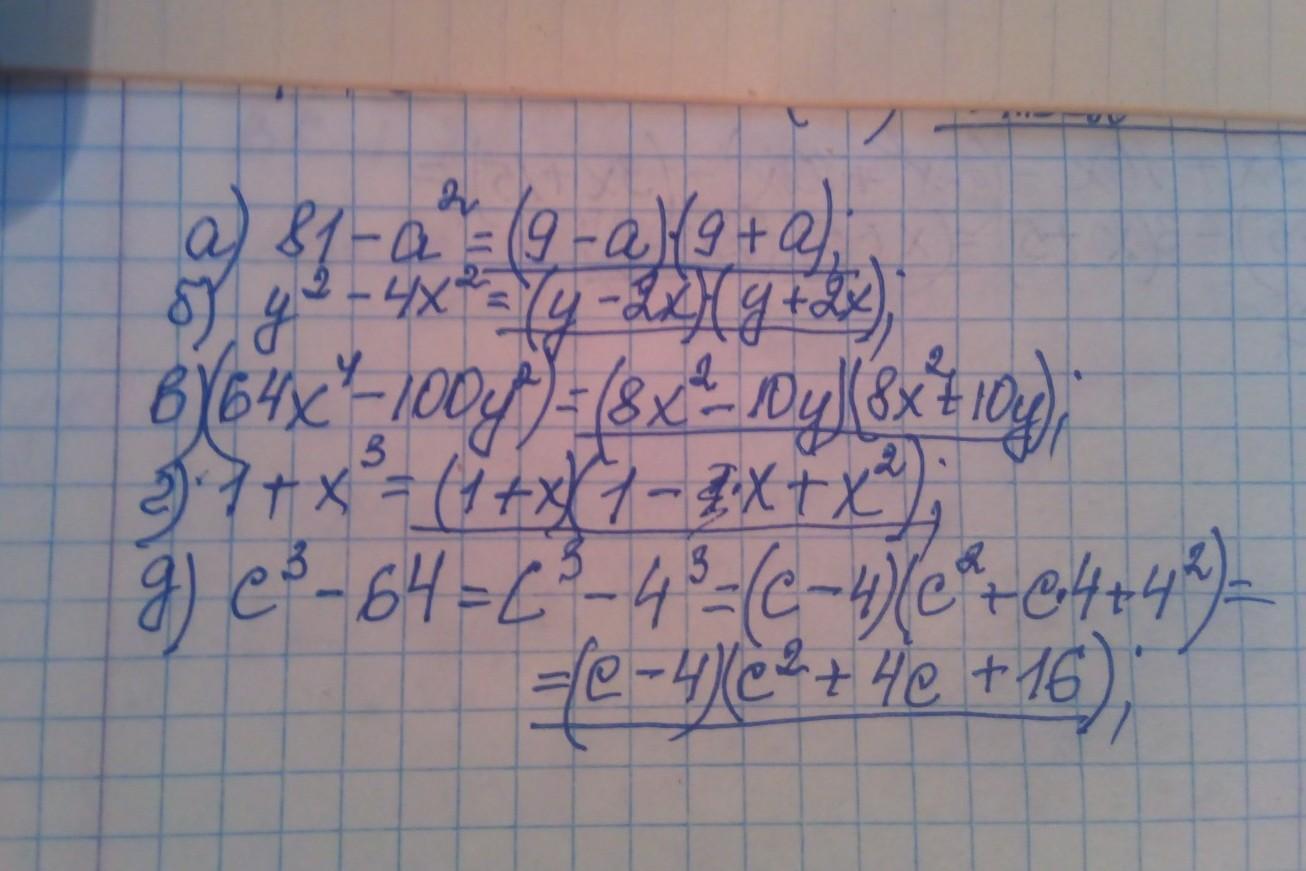 а) 81 - a² = (9 - a)·(9 + a);
б) y² - 4x² = (y - 2x)·(y + 2x);
в) (64x⁴ - 100y²) = (8x² - 10y)(8x² + 10y);
г) 1 + x³ = (1 + x)(1 - x + x²);
д) c³ - 64 = c³ - 4³ = (c - 4)(c² + c·4 + 4²) =
= (c - 4)(c² + 4c + 16);